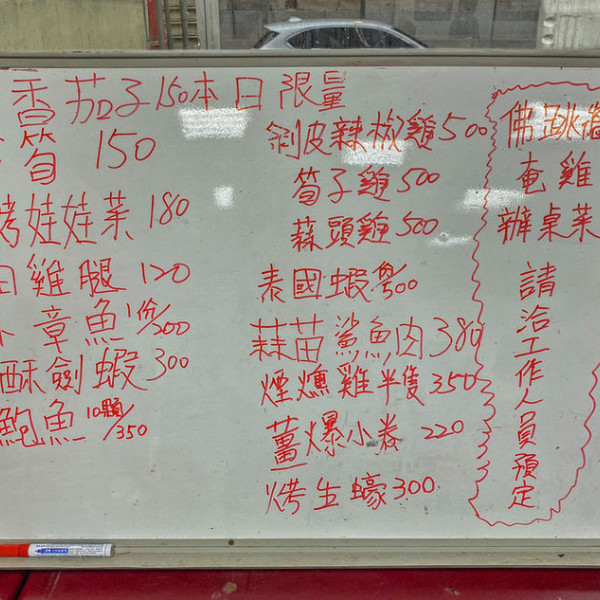 香茄子150 本日限量
筍 150
烤娃娃菜 180
田雞腿 120
章魚 1份/200
酥劍蝦 300
鮑魚 10顆/350
剝皮辣椒雞 500
筍子雞 500
蒜頭雞 500
泰國蝦 500
蒜苗鯊魚肉 380
煙燻雞半隻 350
薑爆小卷 220
烤生蠔 300
佛跳牆
奄雞
辦桌菜
請洽工作人員預定